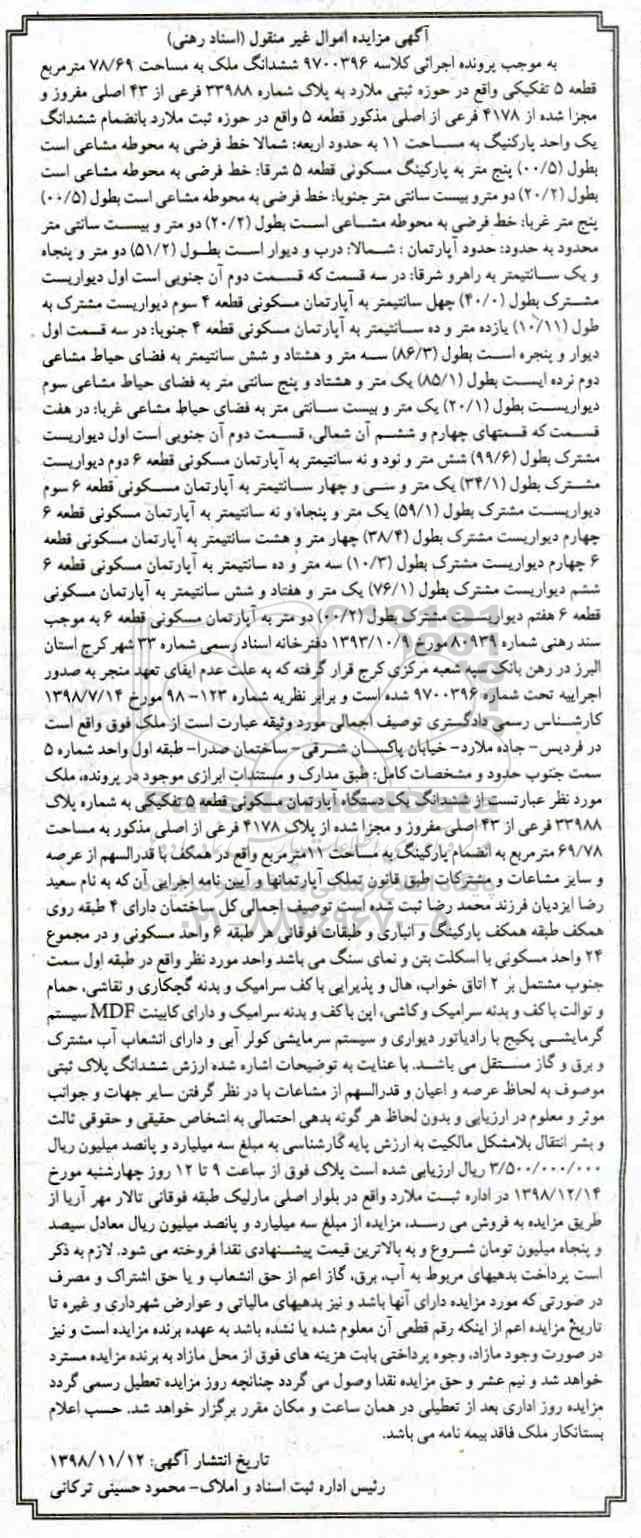 آگهی مزایده اموال غیر منقول (اسناد رهنی)
به موجب پرونده اجرائی کلاسه ۹۷۰۰۳۹۶ ششدانگ ملک به مساحت ۷۸/۶۹ مترمربع
قطعه ۵ تفکیکی واقع در حوزه ثبتی ملارد به پلاک شماره ۳۳۹۸۸ فرعی از ۴۳ اصلی مفروز و
مجزا شده از ۴۱۷۸ فرعی از اصلی مذکور قطعه ۵ واقع در حوزه ثبت ملارد بانضمام ششدانگ
یک واحد پارکنیگ به مساحت ۱۱ به حدود اربعه: شمالا خط فرضی به محوطه مشاعی است
بطول (۰۰/۵) پنج متر به پارکینگ مسکونی قطعه ۵ شرقا: خط فرضی به محوطه مشاعی است
بطول (۲۰/۲) دو مترو بیست سانتی متر جنوبا: خط فرضی به محوطه مشاعی است بطول (۰۰/۵)
پنج متر غربا: خط فرضی به محوطه مشاعی است بطول (۲۰/۲) دو متر و بیست سانتی متر
محدود به حدود: حدود آپارتمان : شمالا: درب و دیوار است بطول (۵۱/۲) دو متر و پنجاه
و یک سانتیمتر به راهرو شرقا: در سه قسمت که قسمت دوم آن جنوبی است اول دیواریست
مشترک بطول (۴۰/۰) چهل سانتیمتر به آپارتمان مسکونی قطعه ۴ سوم دیواریست مشترک به
طول (۱۰/۱۱) یازده متر و ده سانتیمتر به آپارتمان مسکونی قطعه ۴ جنوبا: در سه قسمت اول
دیوار و پنجره است بطول (۸۶/۳) سه متر و هشتاد و شش سانتیمتر به فضای حیاط مشاعی
دوم نرده ایست بطول (۸۵/۱) یک متر و هشتاد و پنج سانتی متر به فضای حیاط مشاعی سوم
دیواریست بطول (۲۰/۱) یک متر و بیست سانتی متر به فضای حیاط مشاعی غربا: در هفت
قسمت که قسمتهای چهارم و ششم آن شمالی، قسمت دوم آن جنوبی است اول دیواریست
مشترک بطول (۹۹/۶) شش متر و نود و نه سانتیمتر به آپارتمان مسکونی قطعه ۶ دوم دیواریست
مشترک بطول (۳۴/۱) یک متر و سی و چهار سانتیمتر به آپارتمان مسکونی قطعه ۶ سوم
دیواریست مشترک بطول (۵۹/۱) یک متر و پنجاه و نه سانتیمتر به آپارتمان مسکونی قطعه ۶
چهارم دیواریست مشترک بطول (۳۸/۴) چهار متر و هشت سانتیمتر به آپارتمان مسکونی قطعه
۶ چهارم دیواریست مشترک بطول (۱۰/۳) سه متر و ده سانتیمتر به آپارتمان مسکونی قطعه ۶
ششم دیواریست مشترک بطول (۷۶/۱) یک متر و هفتاد و شش سانتیمتر به آپارتمان مسکونی
قطعه ۶ هفتم دیواریست مشترک بطول (۰۰/۲) دو متر به آپارتمان مسکونی قطعه ۶ به موجب
سند رهنی شماره ۸۰۹۳۹ مورخ ۱۳۹۳/۱۰/۱ دفترخانه اسناد رسمی شماره ۳۳ شهر کرج استان
البرز در رهن بانک سپه شعبه مرکزی کرج قرار گرفته که به علت عدم ایفای تعهد منجر به صدور
اجراییه تحت شماره ۹۷۰۰۳۹۶ شده است و برابر نظریه شماره ۱۲۳-۹۸ مورخ ۱۳۹۸/۷/۱۴
کارشناس رسمی دادگستری توصیف اجمالی مورد وثیقه عبارت است از ملک فوق واقع است
در فردیس- جاده ملارد- خیابان پاکسان شرقی- ساختمان صدرا- طبقه اول واحد شماره ۵
سمت جنوب حدود و مشخصات کامل: طبق مدارک و مستندات ابرازی موجود در پرونده، ملک
مورد نظر عبارتست از ششدانگ یک دستگاه آپارتمان مسکونی قطعه ۵ تفکیکی به شماره پلاک
۳۳۹۸۸ فرعی از ۴۳ اصلی مفروز و مجزا شده از پلاک ۴۱۷۸ فرعی از اصلی مذکور به مساحت
۶۹/۷۸ مترمربع به انضمام پارکینگ به مساحت ۱۱مترمربع واقع در همکف با قدرالسهم از عرصه
و سایر مشاعات و مشترکات طبق قانون تملک آپارتمانها و آیین نامه اجرایی آن که به نام سعید
رضا ایزدیان فرزند محمد رضا ثبت شده است توصیف اجمالی کل ساختمان دارای ۴ طبقه روی
همکف طبقه همکف پارکینگ و انباری و طبقات فوقانی هر طبقه ۶ واحد مسکونی و در مجموع
۲۴ واحد مسکونی با اسکلت بتن و نمای سنگ می باشد واحد مورد نظر واقع در طبقه اول سمت
جنوب مشتمل بر ۲ اتاق خواب، هال و پذیرایی با کف سرامیک و بدنه گچکاری و نقاشی، حمام
و توالت با کف و بدنه سرامیک و کاشی، اپن با کف و بدنه سرامیک و دارای کابینت MDF سیستم
گرمایشی پکیج با رادیاتور دیواری و سیستم سرمایشی کولر آبی و دارای انشعاب آب مشترک
و برق و گاز مستقل می باشد. با عنایت به توضیحات اشاره شده ارزش ششدانگ پلاک ثبتی
موصوف به لحاظ عرصه و اعیان و قدرالسهم از مشاعات با در نظر گرفتن سایر جهات و جوانب
موثر و معلوم در ارزیابی و بدون لحاظ هر گونه بدهی احتمالی به اشخاص حقیقی و حقوقی ثالت
و بشر انتقال بلامشکل مالکیت به ارزش پایه کارشناسی به مبلغ سه میلیارد و پانصد میلیون ریال
۳/۵۰۰/۰۰۰/۰۰۰ ریال ارزیابی شده است پلاک فوق از ساعت ۹ تا ۱۲ روز چهارشنبه مورخ
۱۳۹۸/۱۲/۱۴ در اداره ثبت ملارد واقع در بلوار اصلی مارلیک طبقه فوقانی تالار مهر آریا از
طریق مزایده به فروش می رسد، مزایده از مبلغ سه میلیارد و پانصد میلیون ریال معادل سیصد
و پنجاه میلیون تومان شروع و به بالاترین قیمت پیشنهادی نقدا فروخته می شود. لازم به ذکر
است پرداخت بدهیهای مربوط به آب، برق، گاز اعم از حق انشعاب و یا حق اشتراک و مصرف
در صورتی که مورد مزایده دارای آنها باشد و نیز بدهیهای مالیاتی و عوارض شهرداری و غیره تا
تاریخ مزایده اعم از اینکه رقم قطعی آن معلوم شده یا نشده باشد به عهده برنده مزایده است و نیز
در صورت وجود مازاد، وجوه پرداختی بابت هزینه های فوق از محل مازاد به برنده مزایده مسترد
خواهد شد و نیم عشر و حق مزایده نقدا وصول می گردد چنانچه روز مزایده تعطیل رسمی گردد
مزایده روز اداری بعد از تعطیلی در همان ساعت و مکان مقرر برگزار خواهد شد. حسب اعلام
بستانکار ملک فاقد بیمه نامه می باشد.
تاریخ انتشار آگهی: ۱۳۹۸/۱۱/۱۲
رئیس اداره ثبت اسناد و املاک- محمود حسینی ترکانی